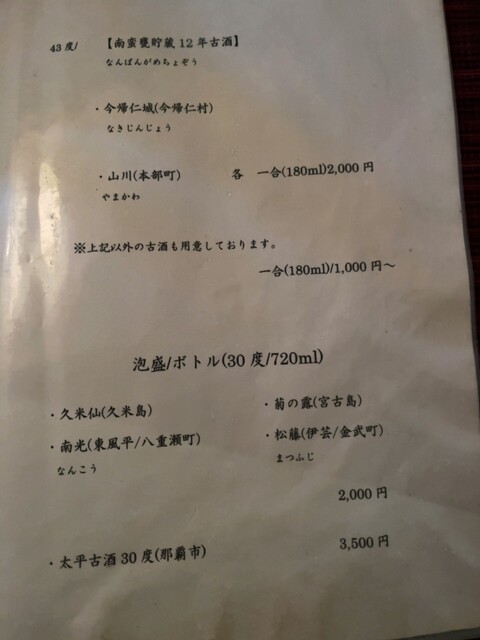 43度/ 【南蛮甕貯蔵12年古酒】
なんばんがめちょぞう
・今帰仁城(今帰仁村)
なきじんじょう
・山川(本部町) 各 一合(180ml)2,000円
やまかわ
※上記以外の古酒も用意しております。
一合(180ml)/1,000円～
泡盛/ボトル(30度/720ml)
・久米仙(久米島) ・菊の露(宮古島)
・南光(東風平/八重瀬町) ・松藤(伊芸/金武町)
なんこう まつふじ
2,000円
・太平古酒30度(那覇市) 3,500円